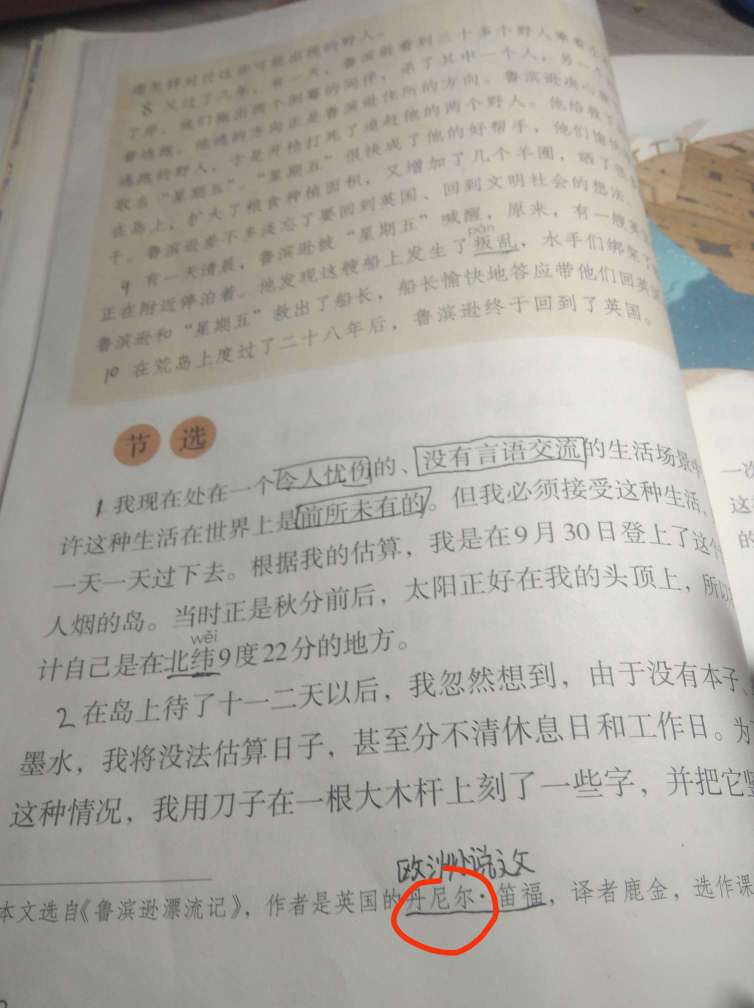 8 又过了几年，有一天，鲁滨逊看到三十多个野人乘着小
了岸，他们拖出两个倒霉的同伴，杀了其中一个人，另一个
着逃跑，他逃的方向正是鲁滨逊住所的方向。鲁滨逊决心救
逃跑的野人，于是开枪打死了追赶他的两个野人。他给救了
取名“星期五”。“星期五”很快成了他的好帮手，他们愉快
在岛上，扩大了粮食种植面积，又增加了几个羊圈，晒了
干。鲁滨逊差不多淡忘了要回到英国、回到文明社会的想法。
9 有一天清晨，鲁滨逊被“星期五”喊醒，原来，有一艘英
pàn
正在附近停泊着。他发现这艘船上发生了叛乱，水手们绑架了
鲁滨逊和“星期五”救出了船长，船长愉快地答应带他们回英国
10 在荒岛上度过了二十八年后，鲁滨逊终于回到了英国。
节 选
1 我现在处在一个令人忧伤的、没有言语交流的生活场景中
许这种生活在世界上是前所未有的。但我必须接受这种生活、
一天一天过下去。根据我的估算，我是在9月30日登上了这个
人烟的岛。当时正是秋分前后，太阳正好在我的头顶上，所以
wěi
计自己是在北纬9度22分的地方。
2 在岛上待了十一二天以后，我忽然想到，由于没有本子、
墨水，我将没法估算日子，甚至分不清休息日和工作日。为
这种情况，我用刀子在一根大木杆上刻了一些字，并把它竖
欧洲小说之父
本文选自《鲁滨逊漂流记》，作者是英国的丹尼尔·笛福，译者鹿金，选作课
一次
这
的